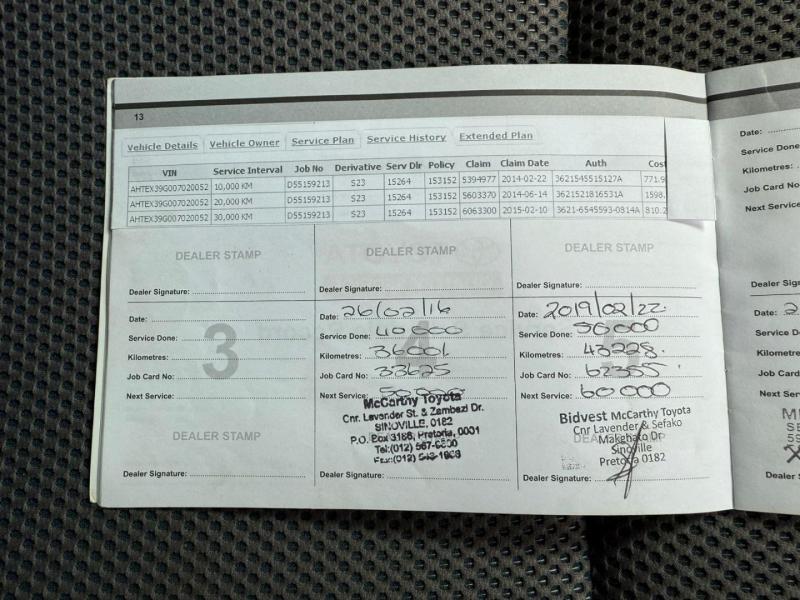 13
Vehicle Details Vehicle Owner Service Plan Service History Extended Plan
VIN Service Interval Job No Derivative Serv Dlr Policy Claim Claim Date Auth Cost
AHTEX39G007020052 10,000 KM D55159213 S23 15264 153152 5394977 2014-02-22 3621545515127A 771.9
AHTEX39G007020052 20,000 KM D55159213 S23 15264 153152 5603370 2014-06-14 3621521816531A 1598.
AHTEX39G007020052 30,000 KM D55159213 S23 15264 153152 6063300 2015-02-10 3621-6545593-0814A 810.2
DEALER STAMP
Dealer Signature:
DEALER STAMP
Dealer Signature:
DEALER STAMP
Dealer Signature:
3
Date:
Service Done:
Kilometres:
Job Card No:
Next Service:
DEALER STAMP
Dealer Signature:
4
Date: 26/02/16
Service Done: 40 000
Kilometres: 36001
Job Card No: 33625
Next Service: 50 000
McCarthy Toyota
Cnr. Lavender St. & Zambezi Dr.
SINOVILLE, 0182
P.O. Box 3188, Pretoria, 0001
Tel:(012) 567-
Fax:(012)
Dealer Signature:
Date: 2019/02/22
Service Done: 50000
Kilometres: 43228.
Job Card No: 62355
Next Service: 60 000
Bidvest McCarthy Toyota
Cnr Lavender & Sefako
Makgatho Dr
Sinoville
Pretoria 0182
Dealer Signature:
Date:
Service Done
Kilometres:
Job Card No
Next Service
Dealer Sign
Date: 2
Service D
Kilometre
Job Card
Next Serv
Dealer S